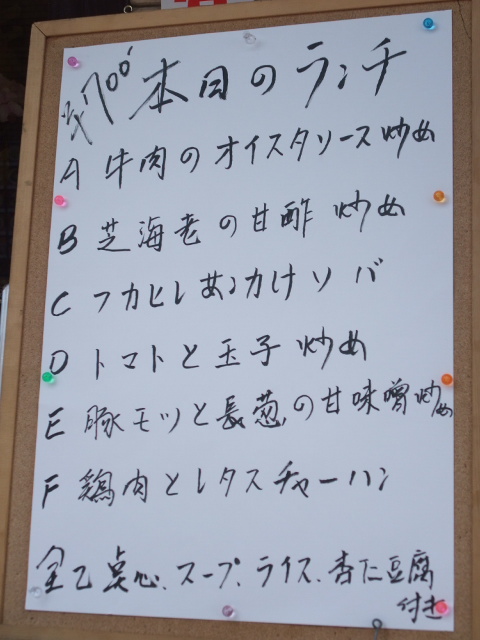 700 本日のランチ
A 牛肉のオイスタソース炒め
B 芝海老の甘酢炒め
C フカヒレあンカけソバ
D トマトと玉子炒め
E 豚モツと長葱の甘味噌炒め
F 鶏肉とレタスチャーハン
全て点心、スープ、ライス、杏仁豆腐
付き